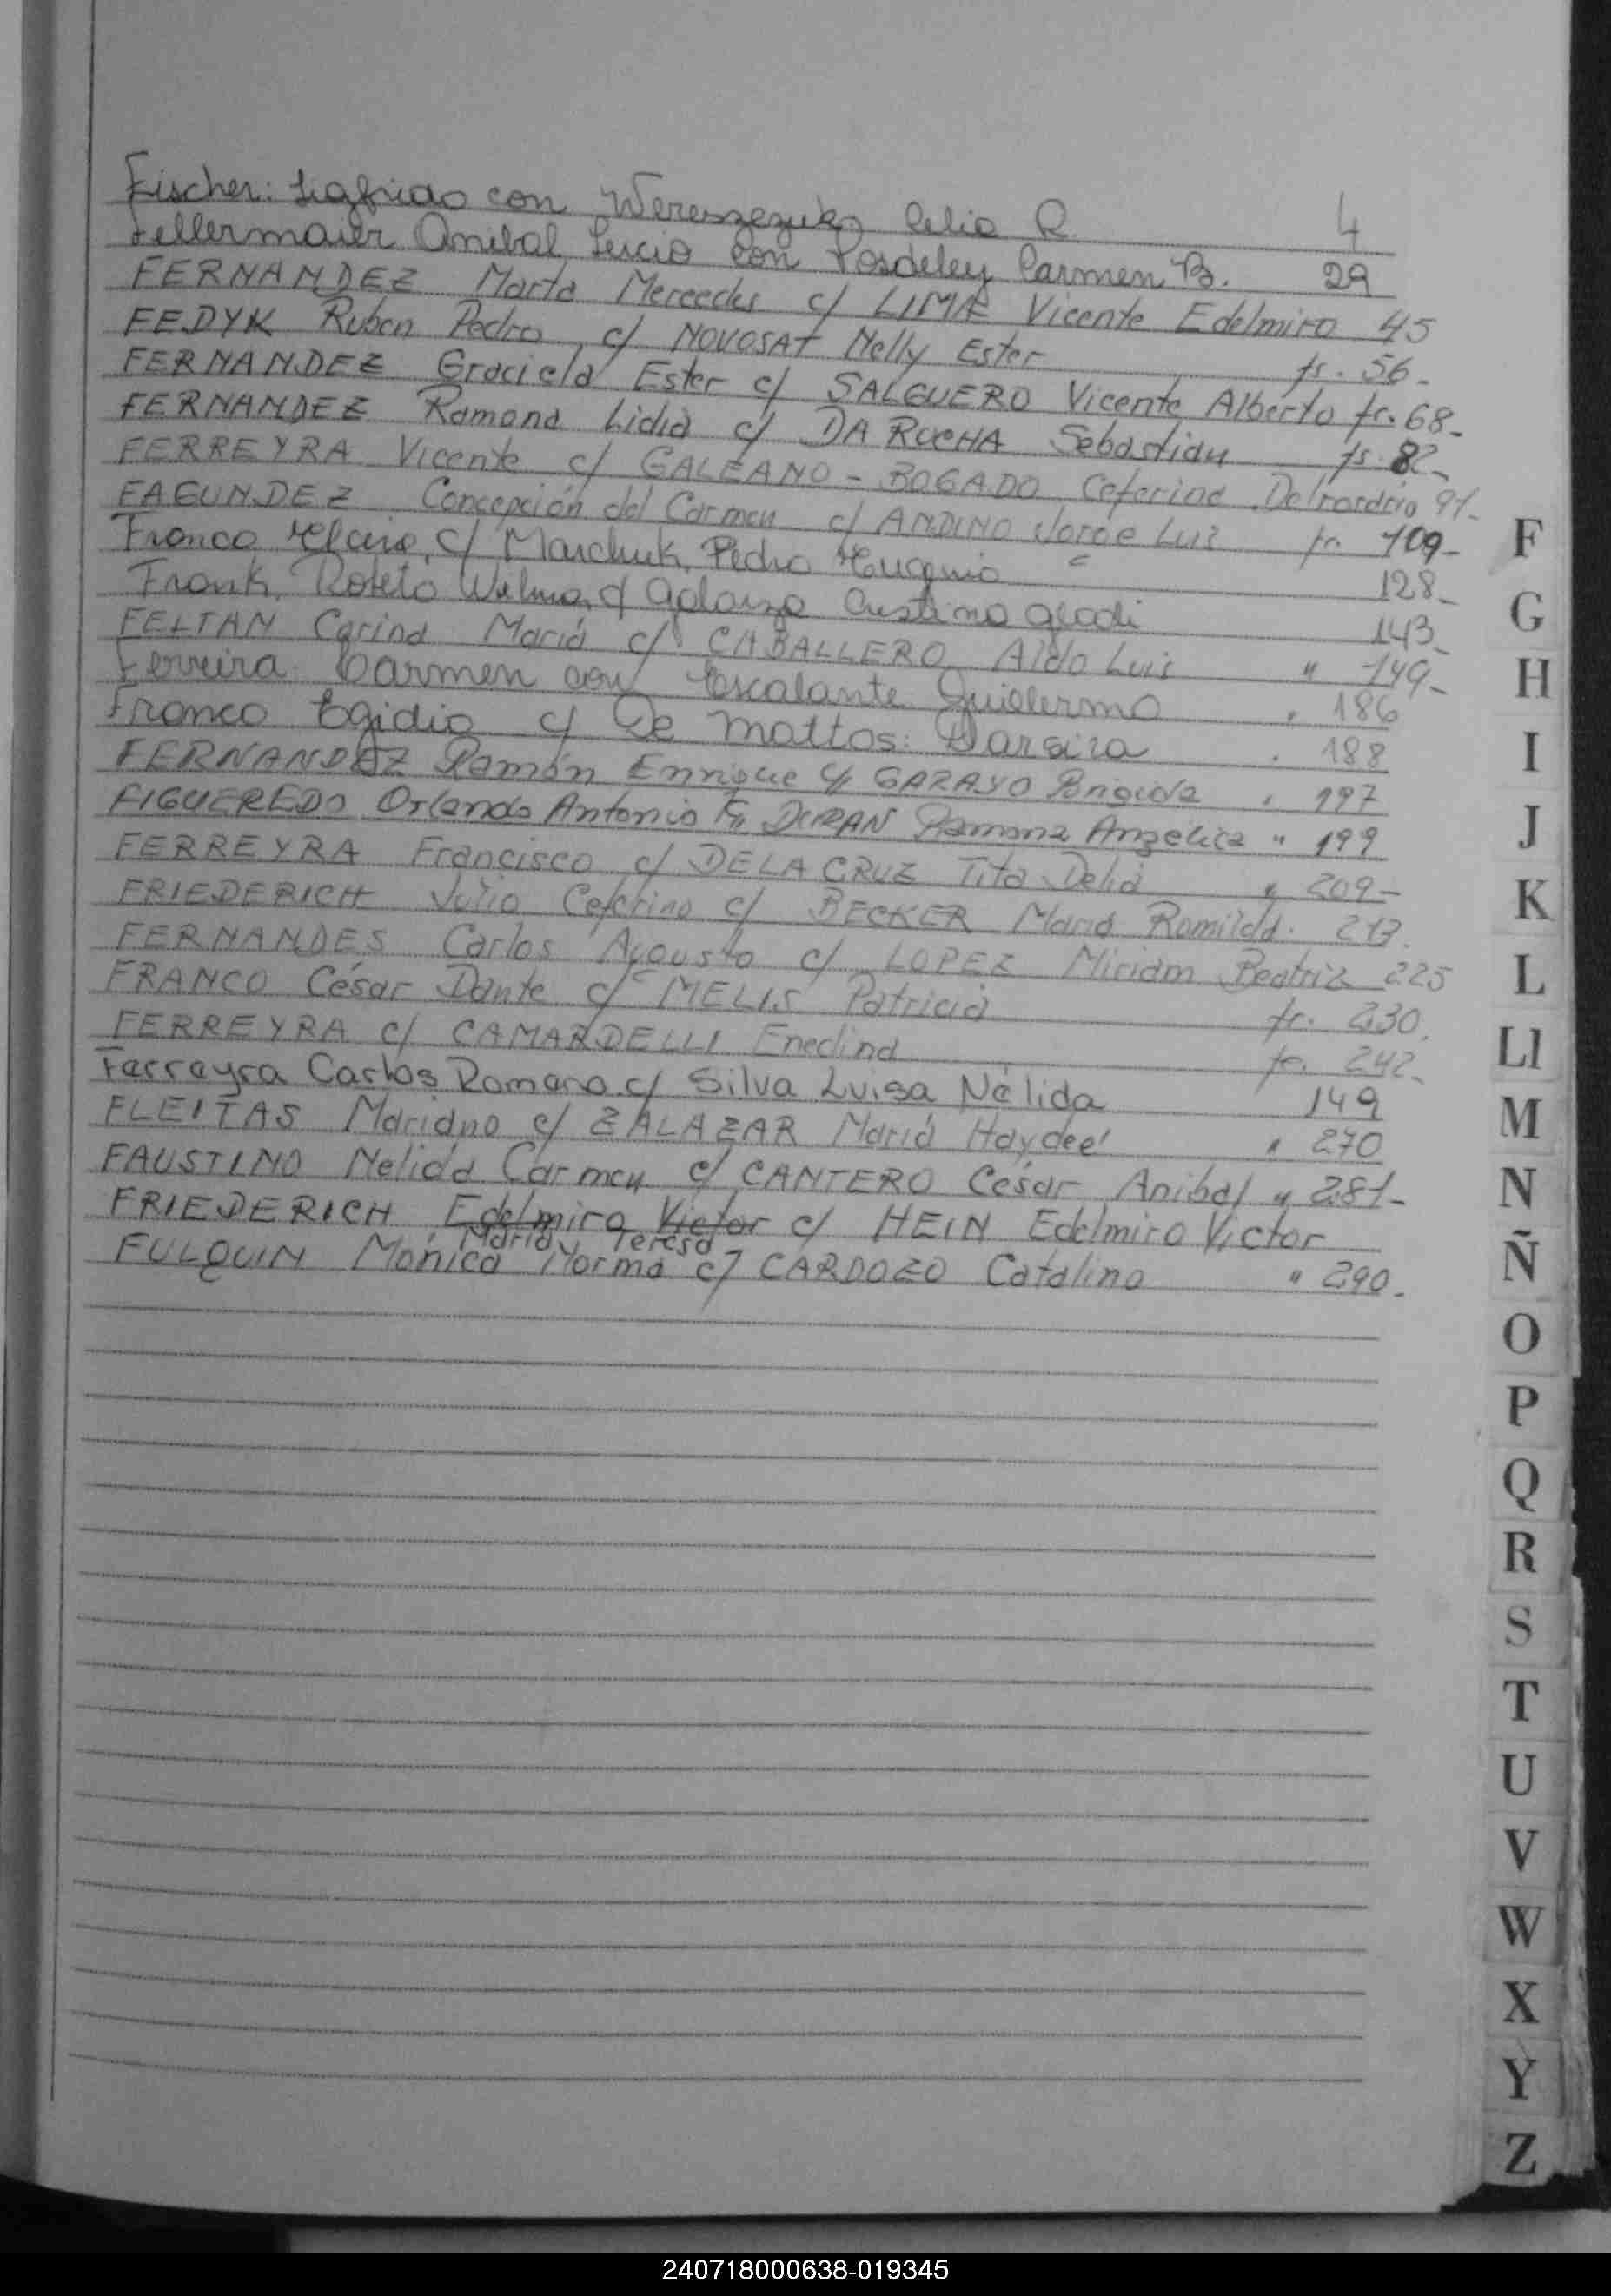 Fischer: Sigfrido con Wereszezuko Celia R. 4
Fellermaier Anibal Lucio con Posdeley Carmen B. 29
FERNANDEZ Marta Mercedes c/ LIMA Vicente Edelmiro 45
FEDYK Ruben Pedro c/ NOVOSAT Nelly Ester fs. 56-
FERNANDEZ Graciela Ester c/ SALGUERO Vicente Alberto fs. 68-
FERNANDEZ Ramona Lidia c/ DA ROCHA Sebastian fs. 82-
FERREYRA Vicente c/ GALEANO - BOGADO Ceferina 91-
FAGUNDEZ Concepción del Carmen c/ ANDINO Jorge Luis fs. 109-
Franco c/ Marchuk, Pedro Eugenio 128-
Frank, Wilma c/ Cristina Gladi 143-
FELTAN Carina María c/ CABALLERO Aldo Luis " 149-
Ferreira Carmen con Escalante Guillermo " 186
Franco Egidio c/ De Mattos: " 188
FERNANDEZ Ramón Enrique c/ GARAYO Brigida " 197
FIGUEREDO Orlando Antonio DURAN Ramona Angelica " 199
FERREYRA Francisco c/ DE LA CRUZ Tita Delia " 209-
FRIEDERICH Julio Ceferino c/ BECKER María Romilda. 213.
FERNANDES Carlos Agousto c/ LOPEZ Miriam Beatriz 225
FRANCO César Dante c/ MELIS Patricia fs. 230.
FERREYRA c/ CAMARDELLI Enedina fs. 242-
Ferreyra Carlos Romero c/ Silva Luisa Nélida 149
FLEITAS Mariano c/ ZALAZAR María Haydeé " 270
FAUSTINO Nelida Carmen c/ CANTERO César Anibal " 281-
FRIEDERICH Edelmiro Victor c/ HEIN Edelmiro Victor
María Teresa
FULQUIN Mónica Norma c/ CARDOZO Catalino " 290.
F
G
H
I
J
K
L
Ll
M
N
Ñ
O
P
Q
R
S
T
U
V
W
X
Y
Z
240718000638-019345